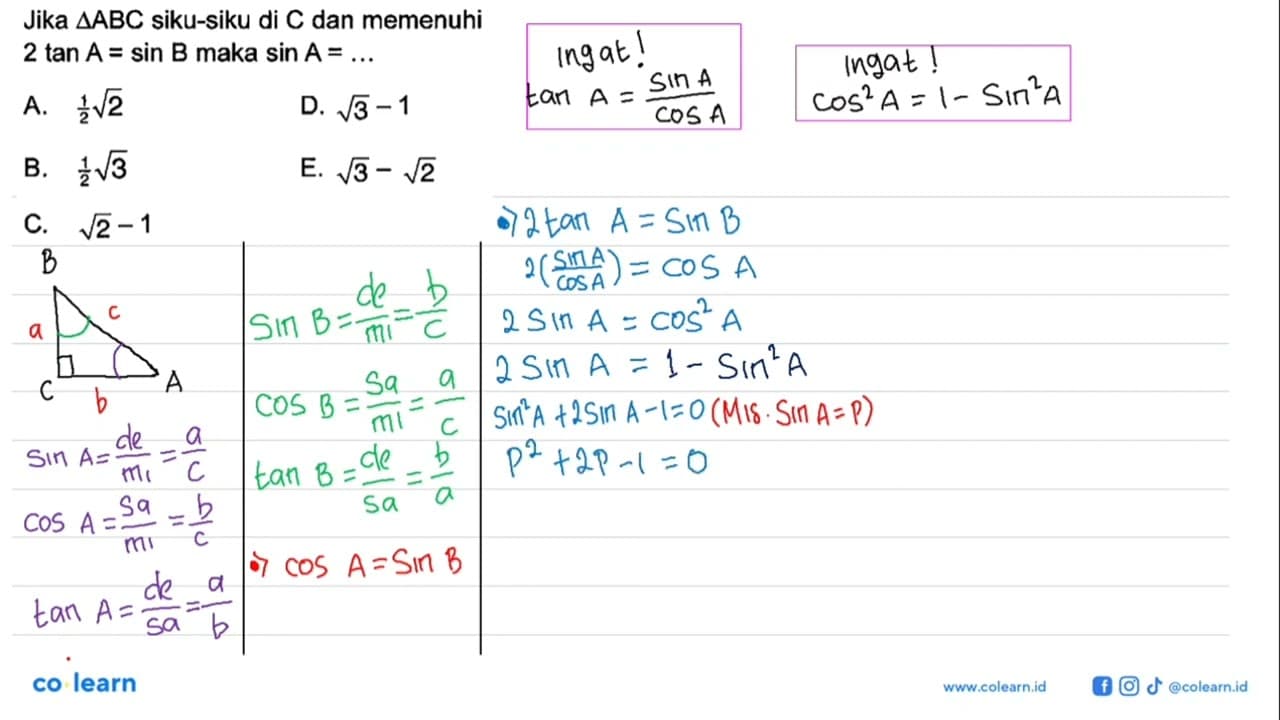 Jika ΔABC siku-siku di C dan memenuhi
2 tan A = sin B maka sin A = ...
A. ½√2
B. ½√3
C. √2 − 1
D. √3 − 1
E. √3 − √2
Ingat!
tan A = sin A / cos A
Ingat!
cos² A = 1 − sin² A
B
a
c
C
b
A
sin A = de/mi = a/c
cos A = sa/mi = b/c
tan A = de/sa = a/b
sin B = de/mi = b/c
cos B = sa/mi = a/c
tan B = de/sa = b/a
cos A = sin B
2 tan A = sin B
2(sin A / cos A) = cos A
2 sin A = cos² A
2 sin A = 1 − sin² A
sin² A + 2 sin A − 1 = 0 (Mis. sin A = P)
P² + 2P − 1 = 0
co learn
www.colearn.id
@colearn.id